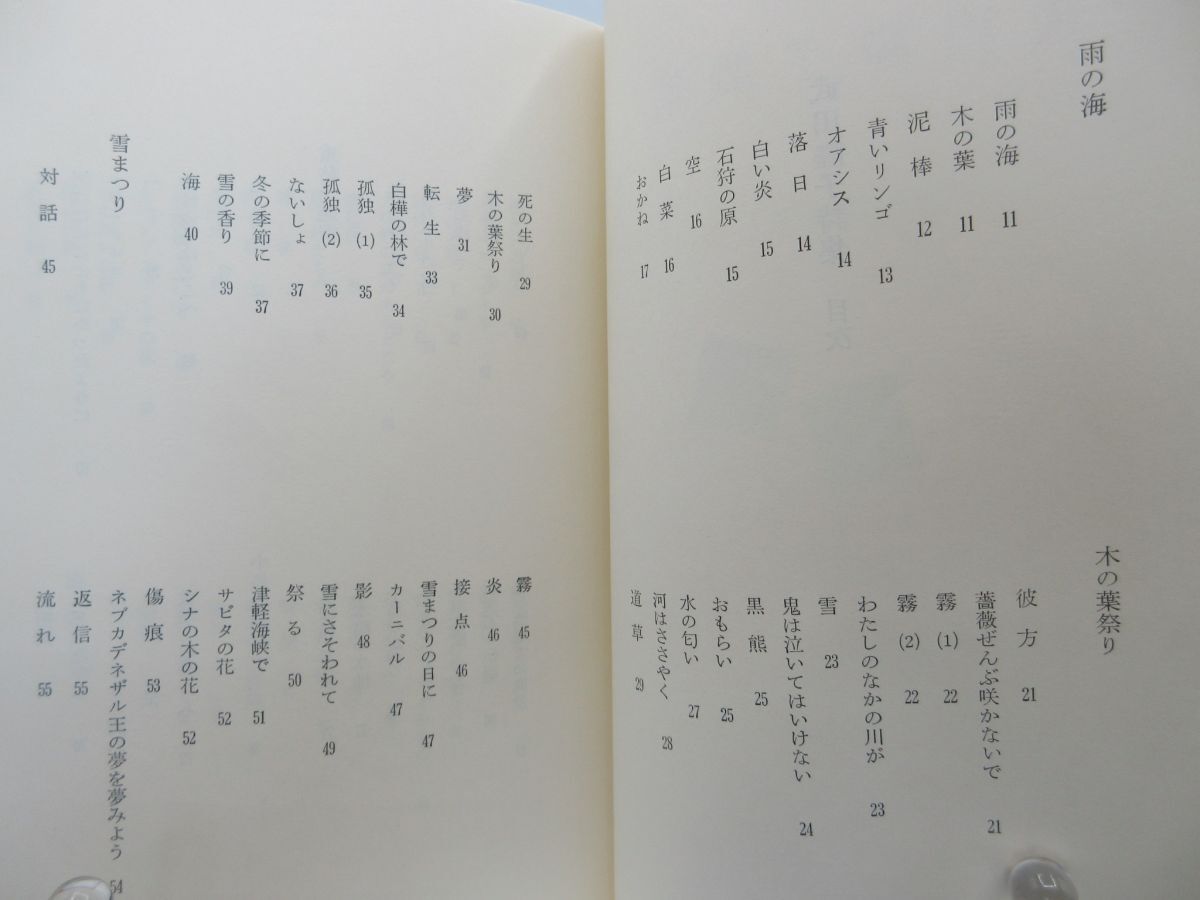 雨の海
雨の海 11
木の葉 11
泥棒 12
青いリンゴ 13
オアシス 14
落日 14
白い炎 15
石狩の原 15
空 16
白菜 16
おかね 17
木の葉祭り
彼方 21
薔薇ぜんぶ咲かないで 21
霧 (1) 22
霧 (2) 22
わたしのなかの川が 23
雪 23
鬼は泣いてはいけない 24
黒熊 25
おもらい 25
水の匂い 27
河はささやく 28
道草 29
死の生 29
木の葉祭り 30
夢 31
転生 33
白樺の林で 34
孤独 (1) 35
孤独 (2) 36
ないしょ 37
冬の季節に 37
雪の香り 39
海 40
雪まつり
対話 45
霧 45
炎 46
接点 46
雪まつりの日に 47
カーニバル 47
影 48
雪にさそわれて 49
祭る 50
津軽海峡で 51
サビタの花 52
シナの木の花 52
傷痕 53
ネブカデネザル王の夢を夢みよう 54
返信 55
流れ 55